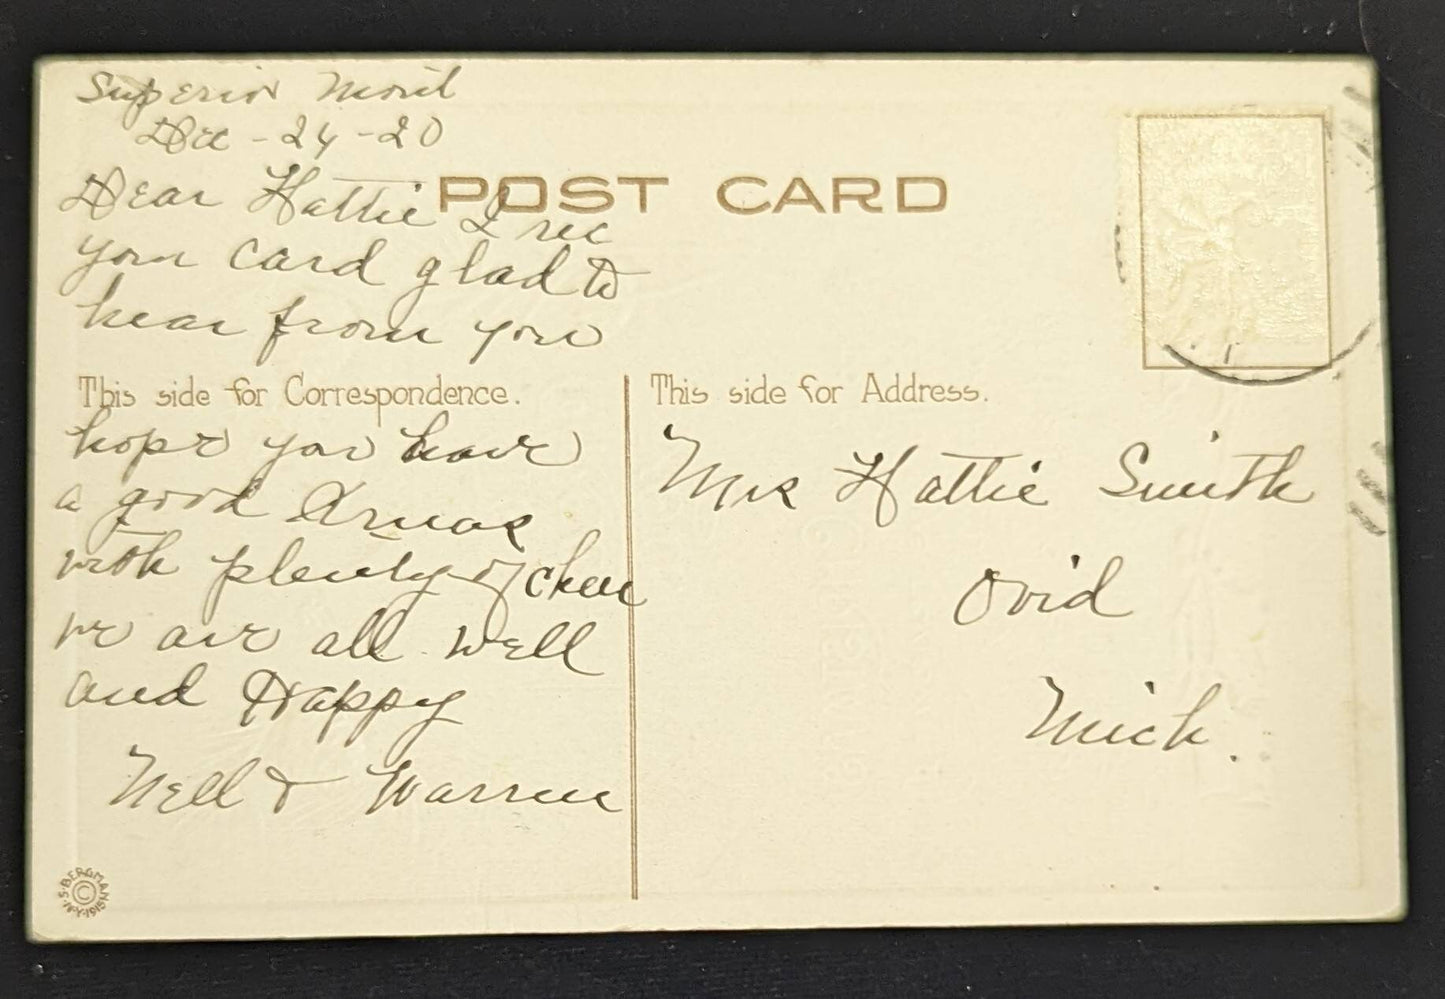 Superior Mont
Dec - 24 - 20
POST CARD
Dear Hattie I rec
your card glad to
hear from you
This side for Correspondence.
hope you have
a good Xmas
with plenty of cheer
we are all well
and Happy
Nell & Warren
This side for Address.
Mrs Hattie Smith
Ovid
Mich.
S. BERGMAN N.Y. 1915
©